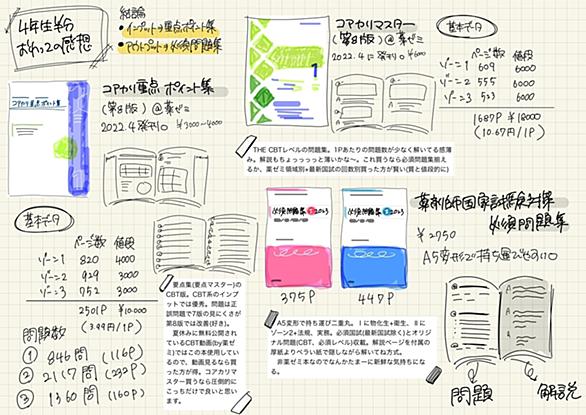 4年生半分
おわっての感想
結論
・インプット→要点ポイント集
・アウトプット→必須問題集
コアカリ重点ポイント集
コアカリ重点 ポイント集
(第8版) @薬ゼミ
2022.4 発刊
¥3000~4000
基本データ
ページ数 値段
ゾーン1 820 4000
ゾーン2 929 3000
ゾーン3 752 3000
2501P ¥10000
(3.99円/1P)
問題数
① 846問 (116P)
② 2117問 (232P)
③ 1360問 (160P)
要点集(要点マスター)の
CBT版。CBT系のインプ
ットでは優秀。問題は正
誤問題で7版の見にくさが
第8版では改善(好き)。
夏休みに無料公開され
ているCBT動画(by薬ゼ
ミ)ではこの本使用してい
るので、動画見るなら買
った方が得。コアカリマス
ター買うなら圧倒的に
こっちだけで良いと思い
ます。
コアカリマスター
(第8版) @薬ゼミ
2022.4に発刊 ¥6000
1
基本データ
ページ数 値段
ゾーン1 609 6000
ゾーン2 555 6000
ゾーン3 523 6000
1687P ¥18000
(10.67円/1P)
THE CBTレベルの問題集。1Pあたりの問題数が少なく解いてる感薄
み。解説もちょっっっっと薄いかな~。これ買うなら必須問題集揃え
るか、薬ゼミ領域別+最新国試の回数別買った方が賢い(質と値段的に)
必須問題集 ① 2023
必須問題集 ② 2023
375P
447P
薬剤師国家試験対策
必須問題集
¥2750
A5変形で持ち運びやすい
A5変形で持ち運び二重丸。Ⅰに物化生+衛生、Ⅱに
ゾーン2+法規、実務。必須国試(最新国試除く)とオリジ
ナル問題(CBT、必須レベル)収載。解説ページを付属の
厚紙よりペラい紙で隠しながら解いてね方式。
非薬ゼミ本なのでなんかたまーに新鮮な気持ちにな
る。
問題
解説